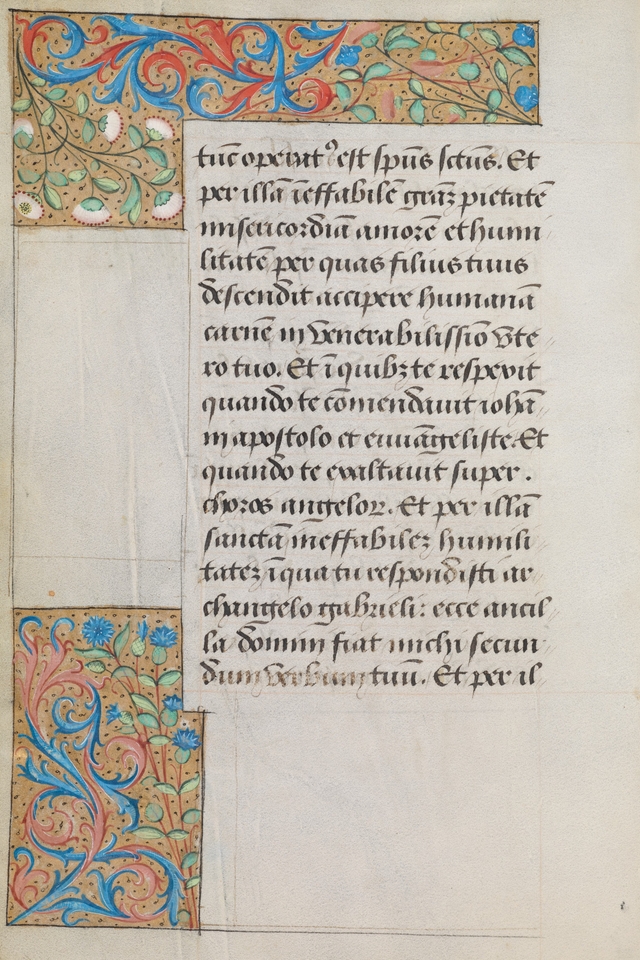 tuc̄ operat᷒ est spūs sctūs. Et
per illā īeffabilē graꝫ pietatē
misericordiā amorē et humi
litatē per quas filius tuus
descendit accipere humanā
carnē in venerabilissiō vte
ro tuo. Et ī quibꝫ te respexit
quando te cōmendauit iohā
ni apostolo et euuāgeliste. Et
quando te exaltauit super .
choros angeloꝝ. Et per illā
sanctā ineffabileꝫ humili
tateꝫ ī qua tu respondisti ar
changelo gabrieli: ecce ancil
la domini fiat michi secun
dum verbum tuū. Et per il